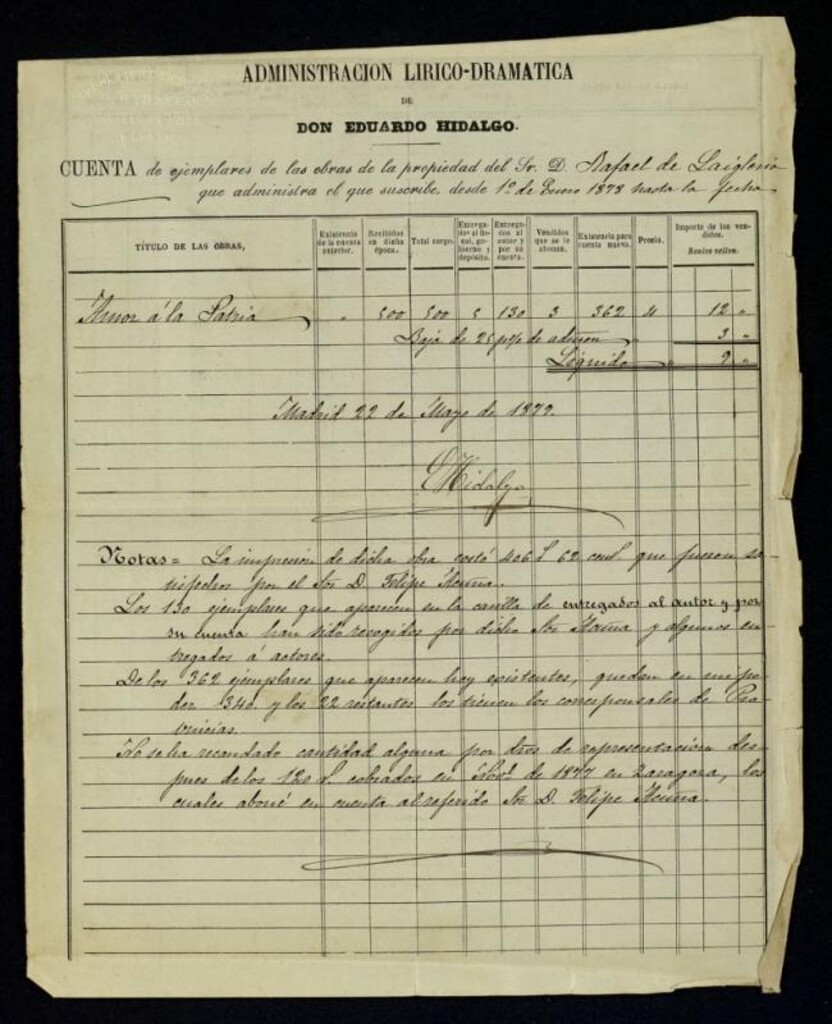 ADMINISTRACION LIRICO-DRAMATICA
DE
DON EDUARDO HIDALGO.
CUENTA de ejemplares de las obras de la propiedad del Sr. D. Rafael de Laiglesia
que administra el que suscribe, desde 1º de Enero 1878 hasta la fecha
TÍTULO DE LAS OBRAS, Existencia de la cuenta anterior. Recibidas en dicha época. Total cargo. Entregados al fiscal, gobierno y depósito. Entregados al autor y por su cuenta. Vendidos que se le abonan. Existencia para cuenta nueva. Precio. Importe de los vendidos. Reales vellon.
Amor á la Patria " 500 500 5 130 3 362 4 12 "
Baja de 25 p% de admon " 3 "
Líquido " 9 "
Madrid 22 de Mayo de 1879.
EHidalgo
Notas = La impresión de dicha obra costó 406 62 cent que fueron sa-
tisfechos por el Sor D. Felipe
Los 130 ejemplares que aparecen en la casilla de entregados al autor y por
su cuenta han sido recogidos por dicho Sor y algunos en-
tregados á actores.
De los 362 ejemplares que aparecen hoy existentes, quedan en mi po-
der 340 y los 22 restantes los tienen los corresponsales de Pro-
vincias.
No se ha recaudado cantidad alguna por dros de representación des-
pues de los 120 cobrados en Novl de 1877 en Zaragoza, los
cuales aboné en cuenta al referido Sor D. Felipe